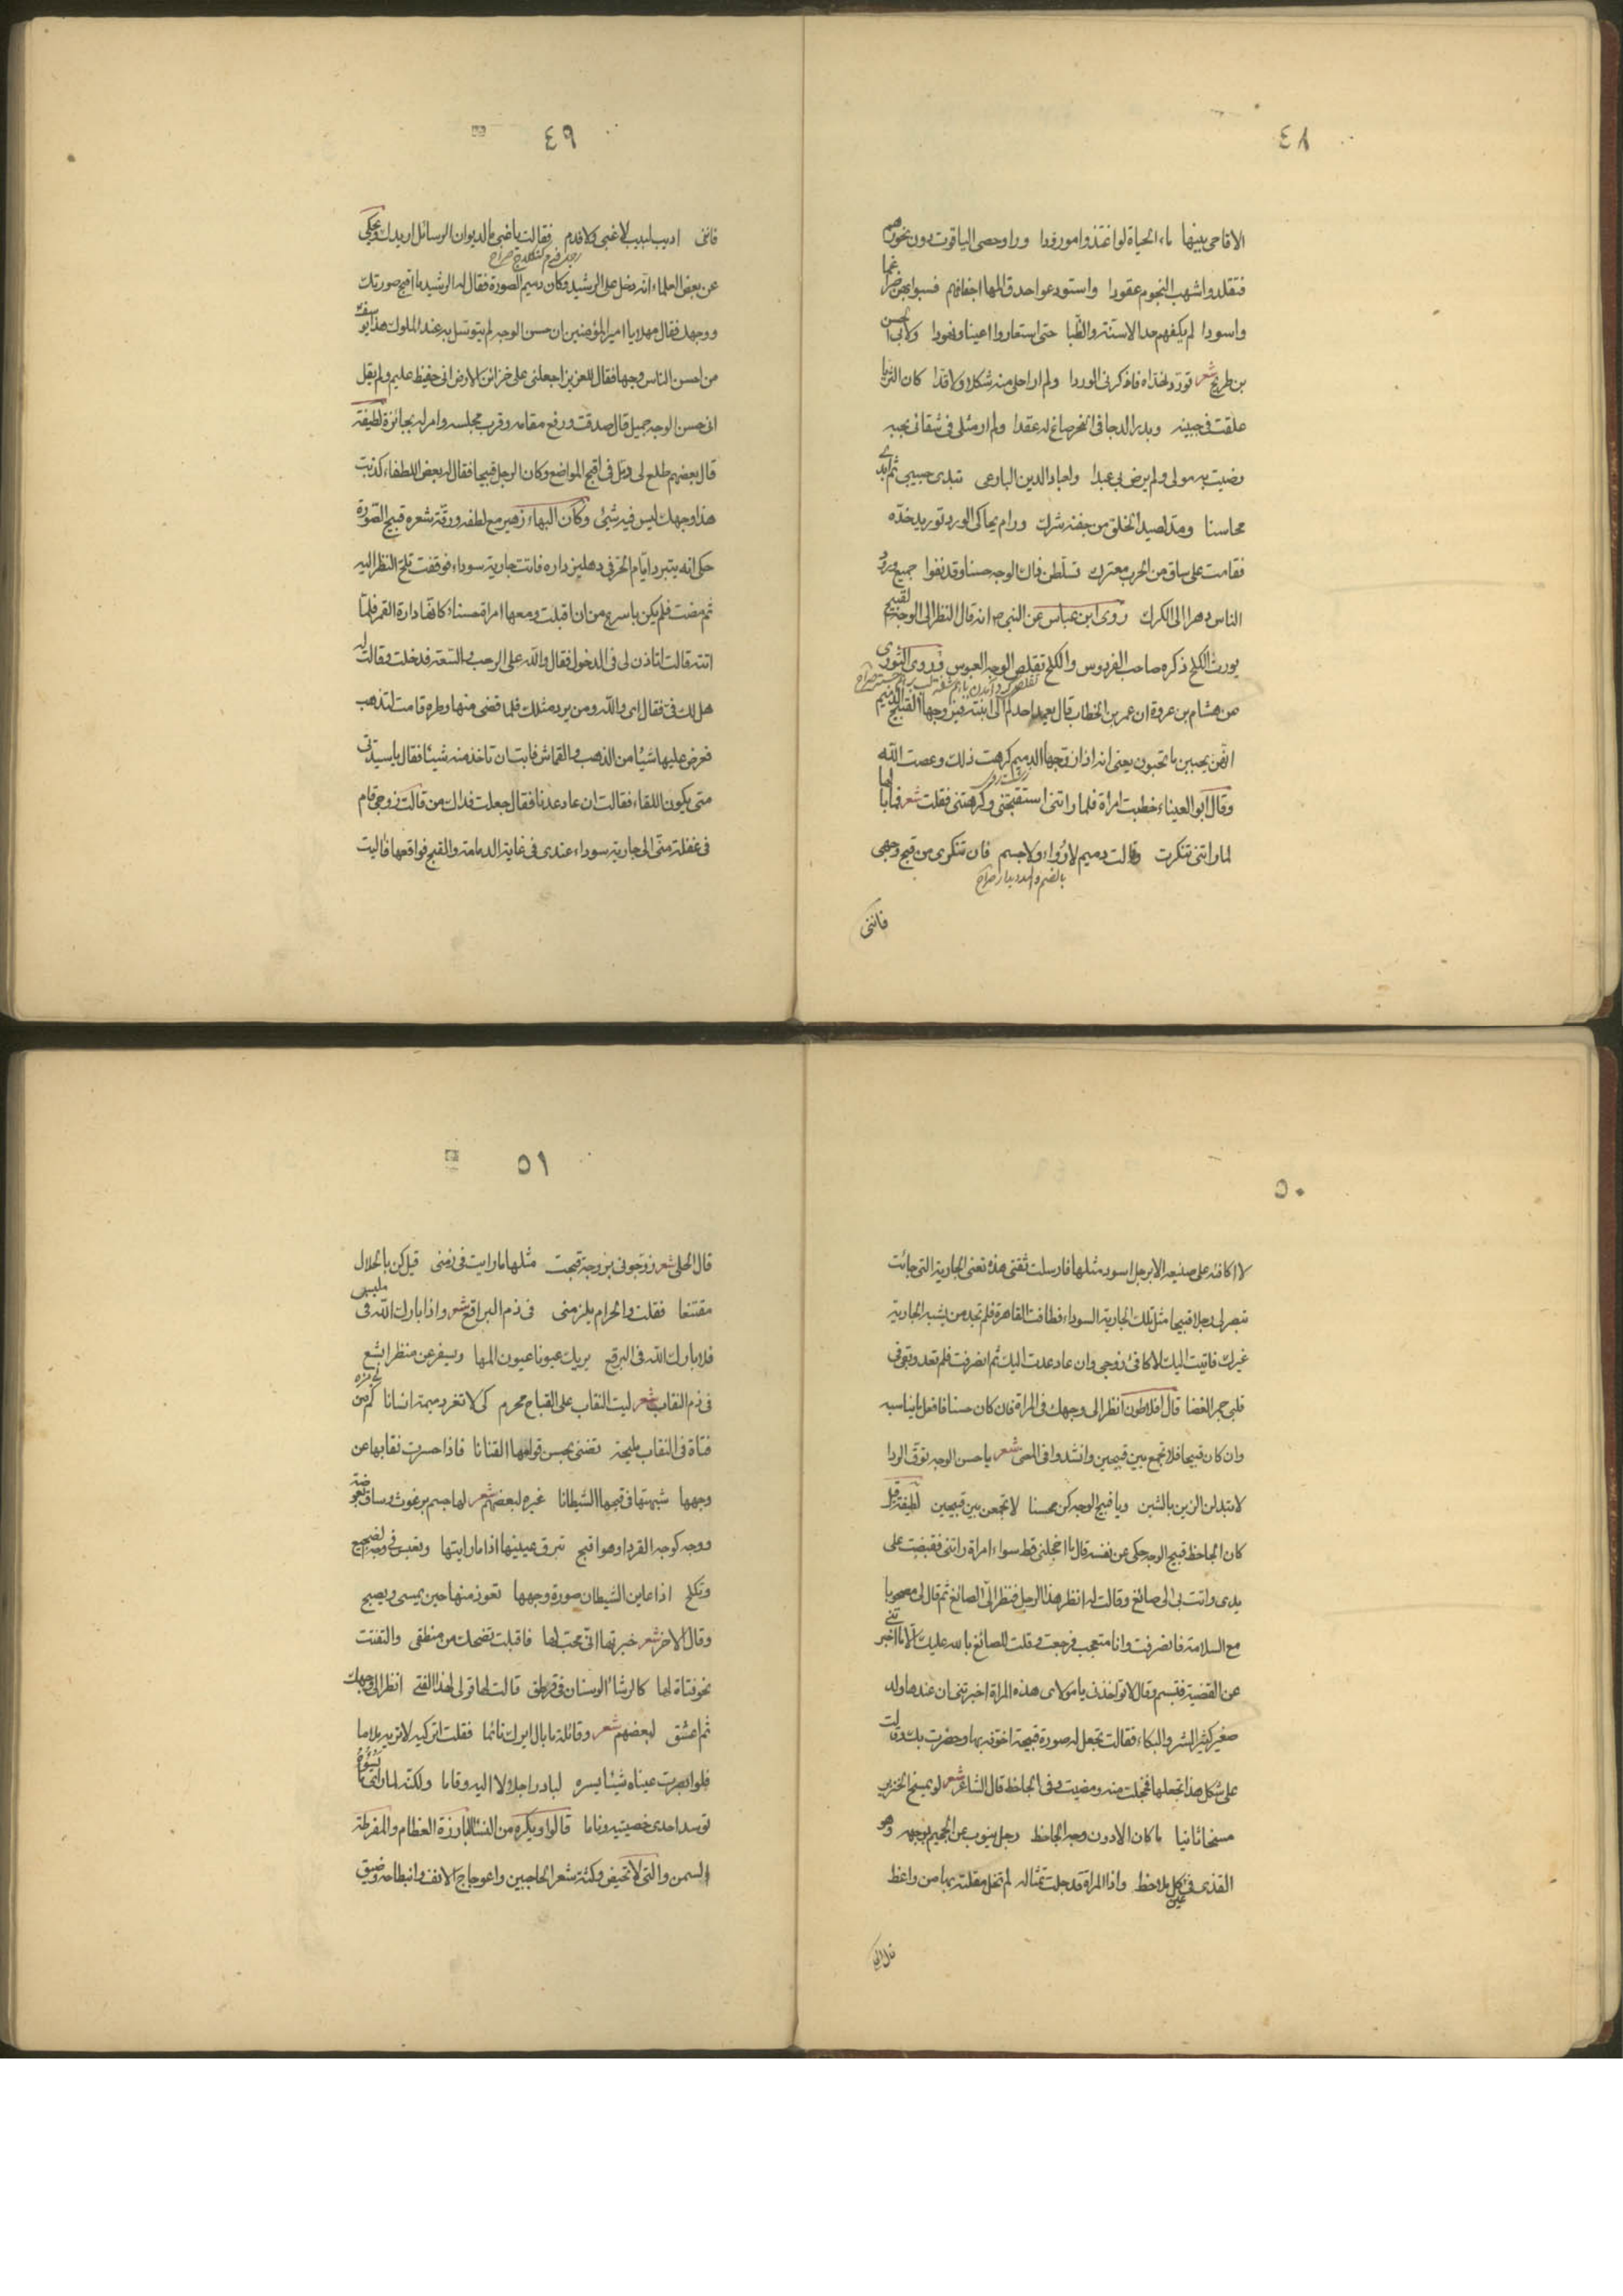 ٤٨
الاقاحى بينها ماء الحياة لو اغتذوا مورودا وراوحصى الياقوت دون نحورهم
فتقلدوا شهب النجوم عقودا واستودعوا حدق المها اجفانهم فسبوا بهن ضراغما
واسودا لم يكفهم حد الاسنة والظبا حتى استعاروا اعينا ونهودا ولابى الحسن
بن طريح شعر تورد لخداه فاذكرنى الوردا ولم ار احلى منه شكلا ولا قدا كان الثريا
علقت فى جبينه وبدر الدجا فى النحر صاغ له عقدا ولم ار مثلى فى شقائى بحبه
رضيت به مولى ولم يرض بى عبدا ولعباد الدين البارعى تبدى حبيبى ثم ابدى
محاسنا ومد لصيد الخلق من جفنه شرك ورام يحاكى الورد توريد خده
فقامت على ساق من الحرب معترك تسلطن ذاك الوجه حسنا وقد نفوا جميع ورود
الناس دهرا الى الكرك روى ابن عباس عن النبى ص انه قال النظر الى الوجه القبيح
يورث الكلح ذكره صاحب الفردوس والكلح تقلص الوجه العبوس وروى الثورى
عن هشام بن عروة ان عمر بن الخطاب قال يعمد احدكم الى ابنته فيزوجها القبيح الدميم
انهن يحببن ما تحبون يعنى انه اذا زوجها الدميم كرهت ذلك وعصت الله
وقال ابو العيناء خطبت امراة فلما راتنى استقبحتنى وكرهتنى فقلت شعر فما بالها
لما راتنى تنكرت وقالت دميم لا رواء ولا جسم فان تنكرى من قبح وجهى
فاننى
٤٩
فاننى اديب لبيب لا غبى ولا فدم فقالت يا غبى ما لديوان الرسائل اريدك وحكى
عن بعض العلماء انه دخل على الرشيد فكان دميم الصورة فقال له الرشيد ما اقبح صورتك
ووجهك فقال مهلا يا امير المؤمنين ان حسن الوجه لم يتوسل به عند الملوك هذا يوسف
من احسن الناس وجها فقال للعزيز اجعلنى على خزائن الارض انى حفيظ عليم ولم يقل
انى حسن الوجه جميل قال صدقت ورفع مقامه وقرب مجلسه وامر له بجائزة لطيفة
قال بعضهم طلع لى دمل فى اقبح المواضع وكان الرجل قبيحا فقال له بعض اللطفاء كذبت
هذا وجهك ليس فيه شيئ وكان البهاء زهير مع لطفه ورقة شعره قبيح الصورة
حكى انه يتبرد ايام الحر فى دهليز داره فاتت جارية سوداء فوقفت تلح النظر اليه
ثم مضت فلم يكن باسرع من ان اقبلت ومعها امراة حسناء كانها دارة القمر فلما
اتته قالت اتاذن لى فى الدخول فقال والله على الرحب والسعة فدخلت وقالت له
هل لك فى فقال اى والله ومن يرد مثلك فلما قضى منها وطره قامت لتذهب
فعرض عليها شيئا من الذهب والقماش فابت ان تاخذ منه شيئا فقال يا سيدتى
متى يكون اللقاء فقالت ان عاد عدنا فقال جعلت فداك من قالت زوجى قام
فى غفلة منى الى جارية سوداء عندى فى غاية الدمامة والقبح فواقعها فاليت
٥٠
لا اكافئه على صنيعه الا برجل اسود مثلها فارسلت ثقتى هذه تعنى الجارية التى جائت
تبصر لى رجلا قبيحا مثل تلك الجارية السوداء فطافت القاهرة فلم تجد من يشبه الجارية
غيرك فاتيت اليك لاكافئ زوجى وان عاد عدت اليك ثم انصرفت فلم تعد وبقى فى
قلبى جمر الغضا قال افلاطون انظر الى وجهك فى المراة فان كان حسنا فافعل ما يناسبه
وان كان قبيحا فلا تجمع بين قبيحين وانشدوا فى المعنى شعر يا حسن الوجه توق الردا
لا تبدلن الزين بالشين ويا قبيح الوجه كن محسنا لا تجمعن بين قبيحين لطيفة قيل
كان الجاحظ قبيح الوجه حكى عن نفسه قال ما اخجلنى قط سواء امراة راتنى فقبضت على
يدى واتت بى الى صائغ وقالت له انظر هذا الرجل فنظر الى الصائغ ثم قال لى مصحوبا
مع السلامة فانصرفت وانا متعجب فرجعت وقلت للصائغ بالله عليك الا ما اخبرتنى
عن القضية فتبسم وقال لا تواخذنى يا مولاى هذه المراة اخبرتنى ان عندها ولد
صغير كثير الشر والبكاء فقالت تجعل له صورة قبيحة اخوفه بها وحضرت بك وقالت
على شكل هذا تجعلها فخجلت منه ومضيت وفى الجاحظ قال الشاعر شعر لو يمسخ الخنزير
مسخا ثانيا ما كان الا دون وجه الجاحظ رجل ينوب عن الجحيم بوجهه وهو
القذى فى كل عين ملاحظ واذا المراة قد جلت تمثاله لم تخل مقلته بها من واعظ
قال الحلى
٥١
قال الحلى شعر زوجونى بزوجة قبحت مثلها ما رايت فى زمنى قيل كن بالحلال
مقتنعا فقلت والحرام يلزمنى فى ذم البراقع شعر واذا بارك الله فى ملبس
فلا بارك الله فى البرقع يريك عيونا عيون المها ويسفر عن منظر ابشع
فى ذم النقاب شعر ليت النقاب على القباح محرم كى لا تغر دميمة انسانا كم من
فتاة فى النقاب مليحة تضنى بحسن قوامها القنانا فاذا حسرت نقابها عن
وجهها شبهتها فى قبحها الشيطانا غيره لبعضهم شعر لها جسم برغوث وساق بعوضة
ووجه كوجه القرد او هو اقبح تبرق عينيها اذا ما رايتها وتعبس فى وجه الضجيع
وتكلح اذا عاين الشيطان صورة وجهها تعوذ منها حين يمسى ويصبح
وقال الاخر شعر خبرتها انى محب لها فاقبلت تضحك من منطقى والتفتت
نحو فتاة لها كالرشاء الوسنان فى قرطق قالت لها قولى لهذا الفتى انظر الى وجهك
ثم اعشق لبعضهم شعر وقائلة ما بال ايرك نائما فقلت اتركيه لا تزيديه ملاما
فلو ابصرت عيناه شيئا يسره لبادر اجلالا اليه وقاما ولكنه لما راى ما يسوءه
توسد احدى خصيتيه وناما قالوا ويكره من النساء البارزة العظام والمفرطة
السمن والتى لا تحيض وكثة شعر الحاجبين واعوجاج الانف وانبطاحه وضيق